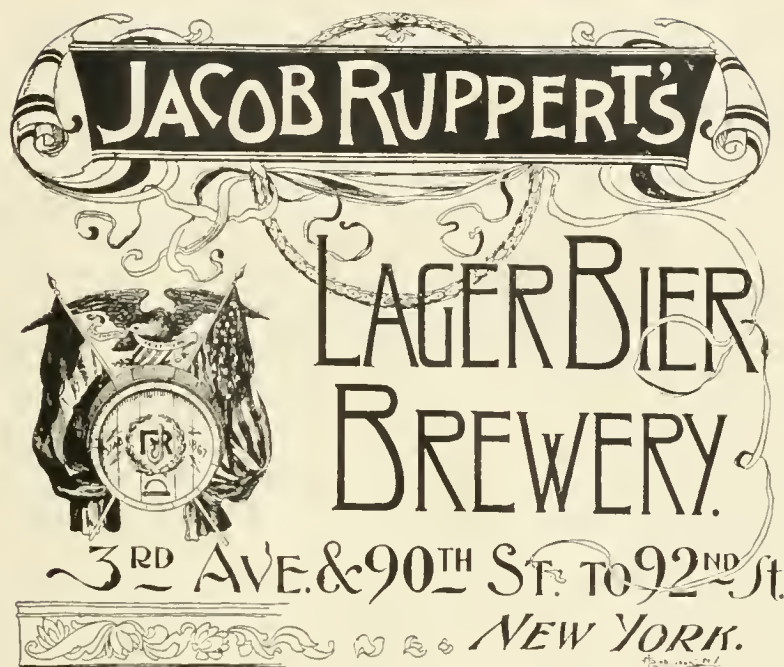 JACOB RUPPERT'S
LAGER BIER
BREWERY.
3RD AVE. & 90TH ST. TO 92ND St.
NEW YORK.